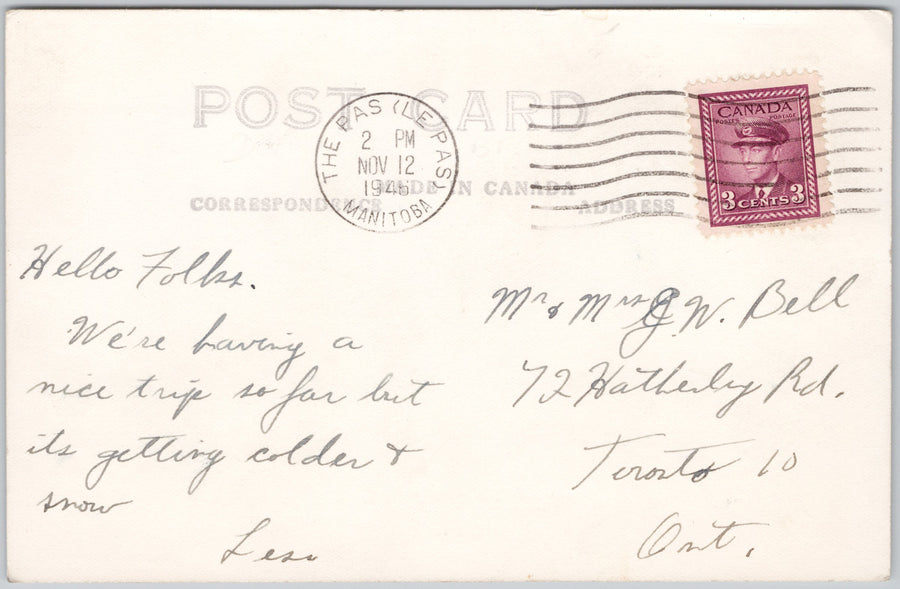 POST CARD
THE PAS (LE PAS)
2 PM
NOV 12
MANITOBA
MADE IN CANADA
CORRESPONDENCE
ADDRESS
CANADA
POSTES POSTAGE
3 CENTS 3
Hello Folks.
We're having a
nice trip so far but
its getting colder &
snow
Mr & Mrs G. W. Bell
72 Hatherley Rd.
Toronto 10
Ont.